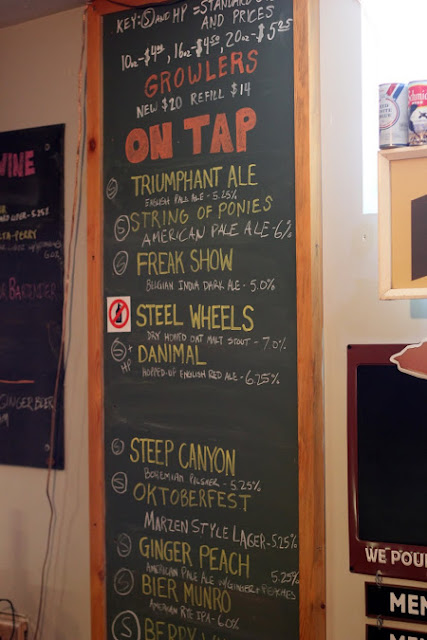 KEY: S AND HP = STANDARD S
AND PRICES
10oz-$4.00, 16oz-$4.50, 20oz-$5.25
GROWLERS
NEW $20 REFILL $14
ON TAP
S TRIUMPHANT ALE
ENGLISH PALE ALE - 5.25%
S STRING OF PONIES
AMERICAN PALE ALE - 6%
S FREAK SHOW
BELGIAN INDIA DARK ALE - 5.0%
STEEL WHEELS
DRY HOPPED OAT MALT STOUT - 7.0%
S + HP DANIMAL
HOPPED-UP ENGLISH RED ALE - 6.25%
S STEEP CANYON
BOHEMIAN PILSNER - 5.25%
S OKTOBERFEST
MARZEN STYLE LAGER - 5.25%
S GINGER PEACH
AMERICAN PALE ALE W/ GINGER & PEACHES 5.25%
S BIER MUNRO
AMERICAN RYE IPA - 6.0%
S BERRY
WINE
5.25%
PERRY
BARTENDER
GINGER BEER
WE POU
MEN
ME